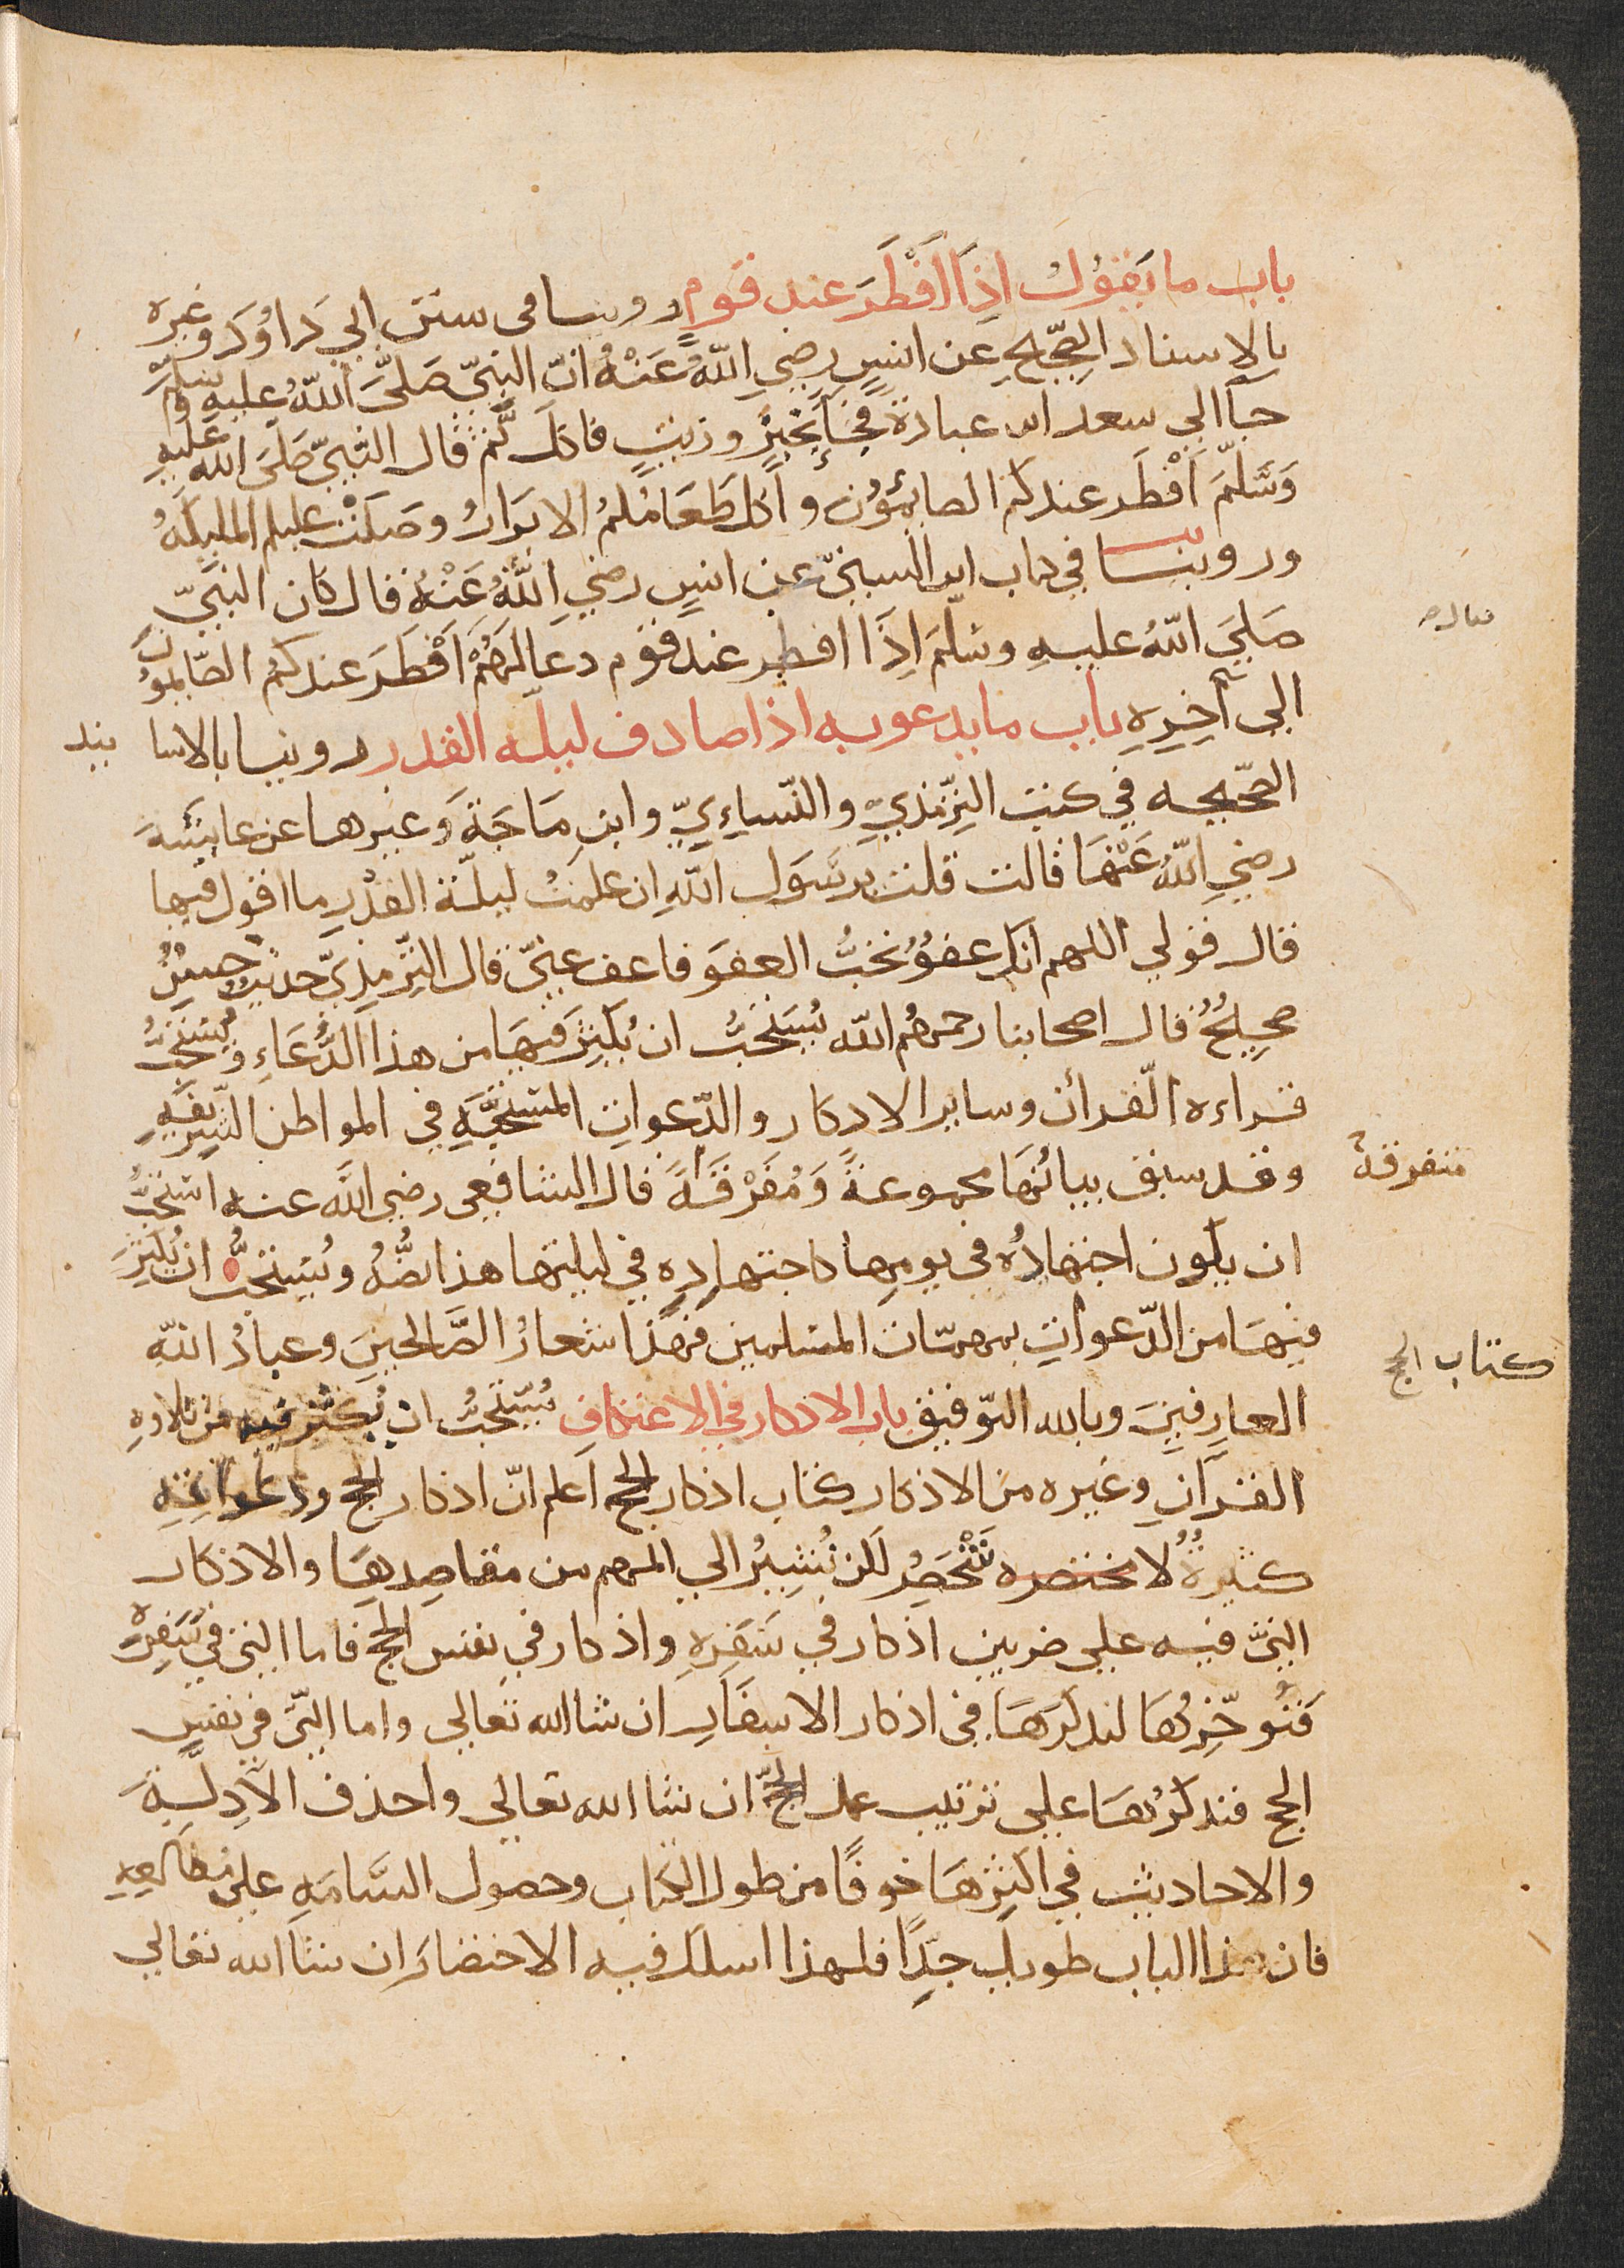 باب ما يَقُولُ اِذَا اَفْطَرَ عند قومٍ روينا فى سنن ابي دَاوُدَ وغيره
بالاسناد الصّحيح عن انسٍ رضي اللهُ عَنْهُ انّ النبيّ صَلَّى اللهُ عليه وسلّم
جآ الي سعد ابن عبادة فجآ بخبزٍ وزيتٍ فاكل ثم قال النّبيّ صَلى الله عليهِ
وَسَلَّمَ اَفْطَر عندكم الصائمُون واَكل طَعَامَكمُ الابرَارُ وصَلَّتْ عليكم الملايكةُ
وروينا في كتاب ابن السنيّ عن انسٍ رضي اللهُ عَنْهُ قال كان النبيّ
صَليَ اللهُ عليهِ وسلّمَ اِذَا افطر عند قوم دعا لهُمْ اَفْطَرَ عندكم الصّايمُونَ
الي آخِرِهِ باب ما يدعو به اذا صادف ليلة القدر روينا بالاسا نيد
الصّحيحه في كتب التِرّمذيّ والنّساءِيّ وابنِ مَاجَةَ وغيرها عن عايشَةَ
رضي اللهُ عَنْهَا قالت قلت يرسَول اللهِ ان علمتُ ليلَة القدْرِ ما اقول فيها
قال قولي اللهم انك عفوٌ تحبُّ العفوَ فاعف عنيّ قال التِرّمذيّ حديث حسنٌ
صحيحٌ قال اصحابنا رحمهُم الله يُستحَبُّ ان يُكثِرَ فيهَا من هذا الدُّعَاءِ ويُستحَبُّ
قراءه القرأن وساير الاذكار والدّعواتِ المستحَبَّةِ في المواطن الشّريفةِ
وقد سبق بيانُهَا مجموعةً وَمُفَرْقَةً قال الشافعي رضي الله عنه استحبُّ
متفرقة
ان يكون اجتهادُه في يومِها كاجتهادِهِ في ليلتها هذا نصُّهُ ويُستحَبُّ ان يُكثِرَ
فيهَا من الدّعواتِ بمهمّات المسلمين فهَذا شعارُ الصَّالحينَ وعبادُ اللهِ
كتاب الحج
العارِفينَ وبالله التوفيق باب الاذكار في الاعتكافِ يُستَحَبُّ ان يُكثر فيه من تلاوه
القرآنِ وغيره من الاذكار كتاب اذكار الحج اعلم انّ اذكار الحج ودعواته
كثيرةٌ لا تختصره تَنْحَصِرُ لكن نُشِيرُ الي المهم من مقاصِدِهَا والاذكار
التيّ فيه علي ضربين اذكار في سَفَرِهِ واذكار في نفس الحج فاما التي في سَفَرِه
فَنُوخِّرُهَا لنذكرَهَا في اذكار الاسفَار ان شا الله تعالي واما التيّ في نفسِ
الحج فنذكُرُهَا علي ترتيب عمل الحجّ ان شا الله تعالي واحذف الاَدِلَّةَ
والاحاديث في اكثِرهَا خوفًا من طول الكتاب وحصول السَّامَه علي مطالِعِهِ
فان هذا الباب طويل جدًا فلهذا اسلك فيه الاختصَارَ ان شا الله تعالي